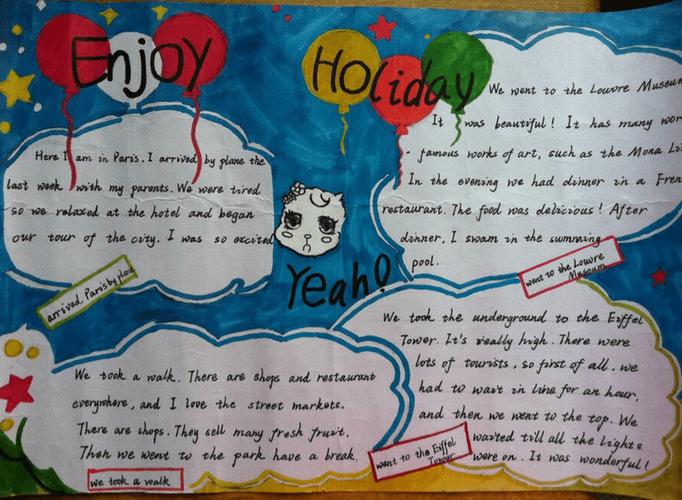 Enjoy
Holiday
Here I am in Paris. I arrived by plane the
last week with my parents. We were tired
so we relaxed at the hotel and began
our tour of the city. I was so excited
arrived. Paris by plane
We went to the Louvre Museum
It was beautiful! It has many
famous works of art, such as the Mona
In the evening we had dinner in a
restaurant. The food was delicious! After
dinner, I swam in the
pool.
went to the Louvre
Museum
Yeah!
We took a walk. There are shops and restaurant
everywhere, and I love the street markets.
There are shops. They sell many fresh fruit.
Then we went to the park have a break.
we took a walk
We took the underground to the Eiffel
Tower. It's really high. There were
lots of tourists, so first of all, we
had to wait in line for an hour,
and then we went to the top. We
waited till all the lights
were on. It was wonderful!
went to the Eiffel
Tower